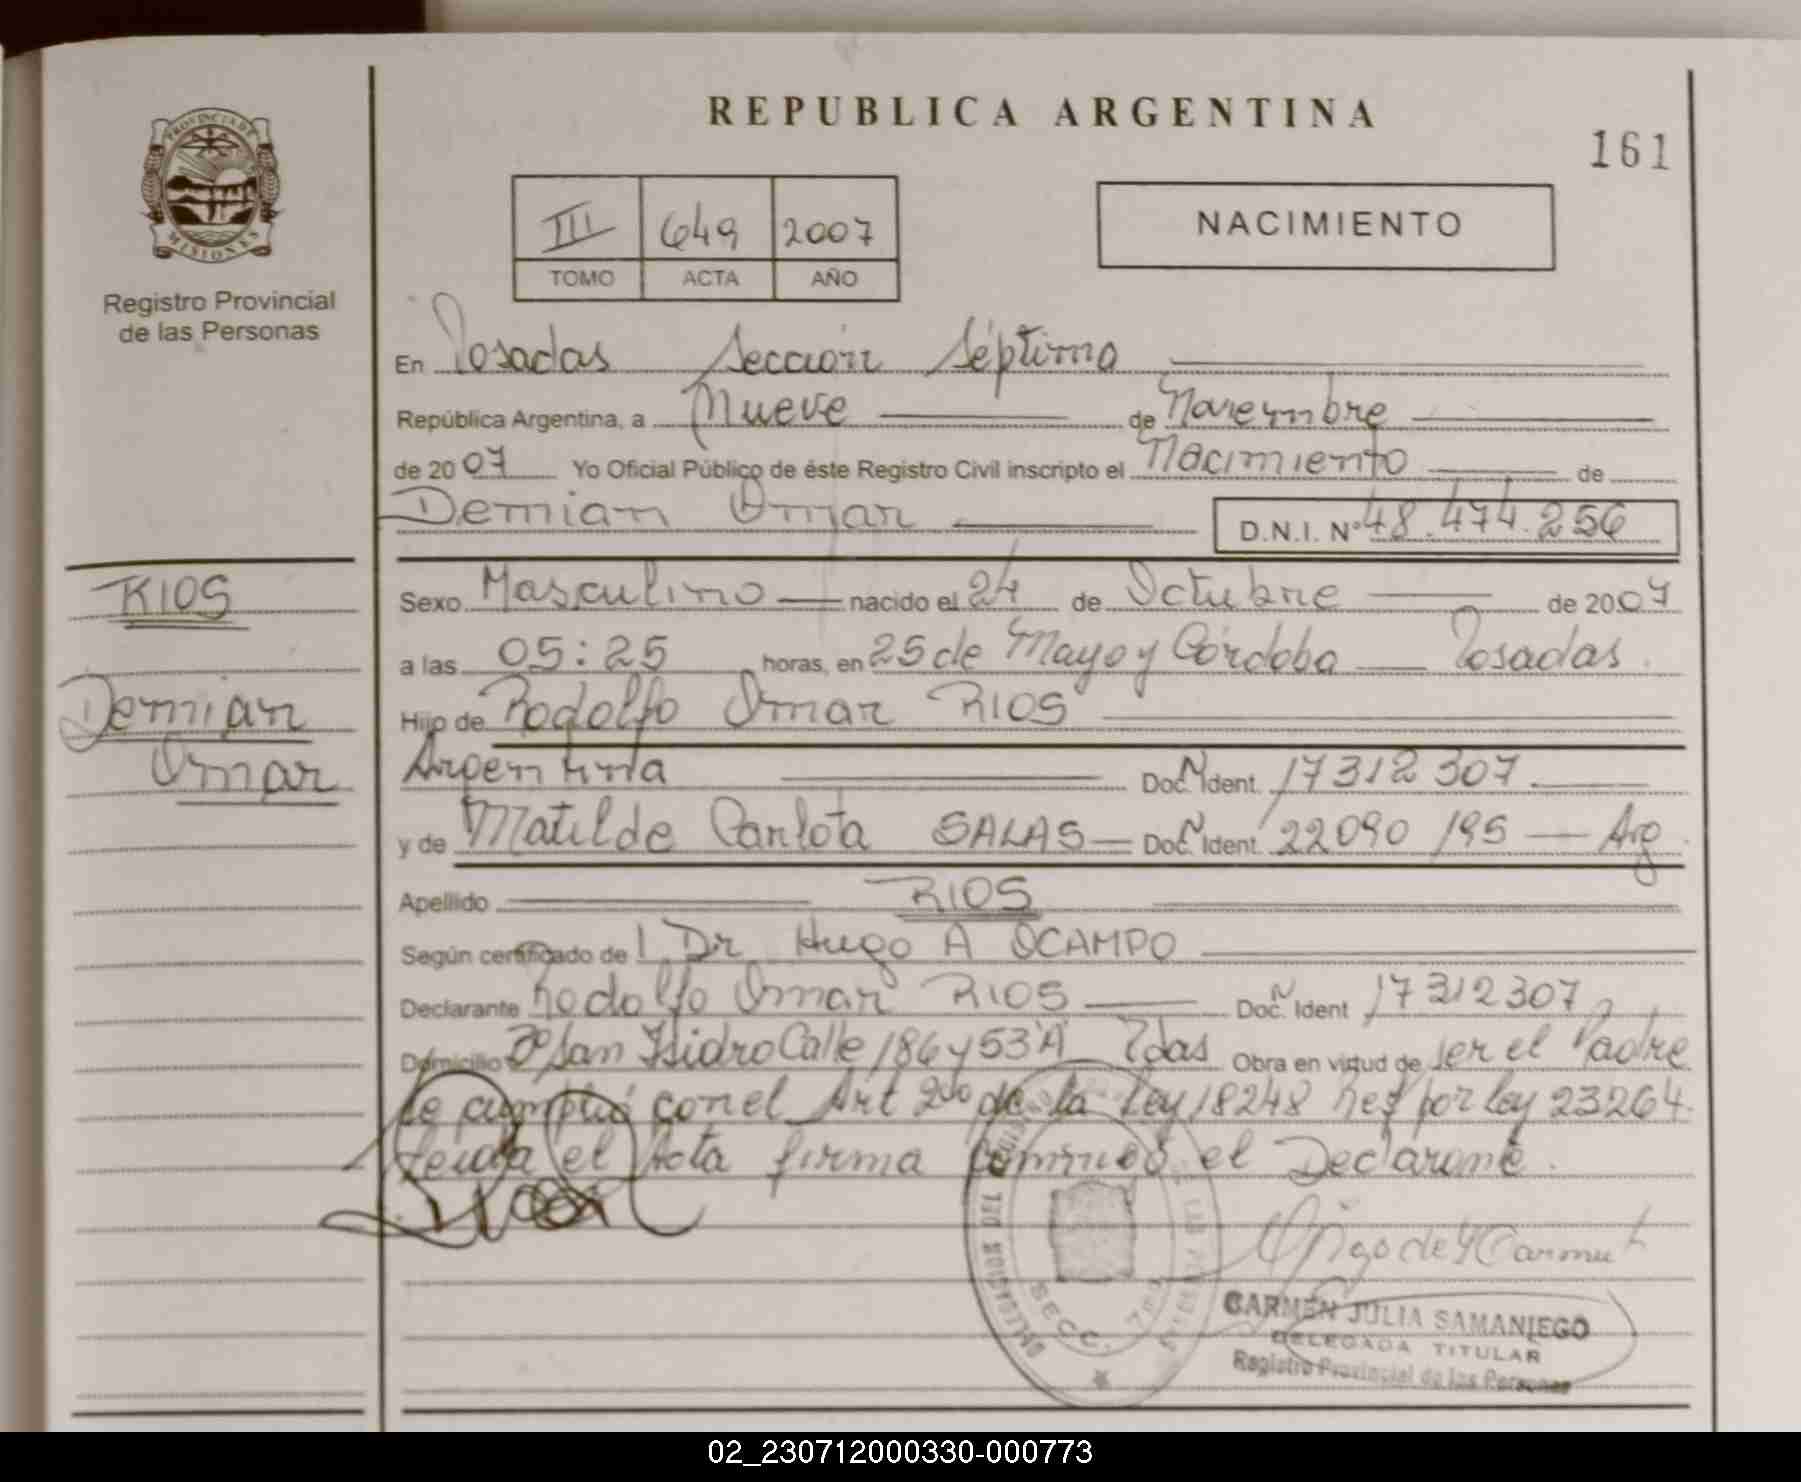 REPUBLICA ARGENTINA
161
PROVINCIA DE
MISIONES
Registro Provincial
de las Personas
III 649 2007
TOMO ACTA AÑO
NACIMIENTO
En Posadas Sección Séptima
República Argentina, a Nueve de Noviembre
de 2007 Yo Oficial Público de éste Registro Civil inscripto el Nacimiento de
Demian Omar D.N.I. Nº 48.474.256
RIOS
Demian
Omar
Sexo Masculino nacido el 24 de Octubre de 2007
a las 05:25 horas, en 25 de Mayo y Córdoba Posadas.
Hijo de Rodolfo Omar RIOS
Argentina Doc. Ident. 17312307
y de Matilde Carlota SALAS Doc. Ident. 22090195 Arg
Apellido RIOS
Según certificado de Dr Hugo A OCAMPO
Declarante Rodolfo Omar RIOS Doc. Ident 17312307
Domicilio Bº San Isidro Calle 186 y 53 "A" Pdas Obra en virtud de ser el Padre
Se cumplió con el Art 2do de la Ley 18248 Ref por ley 23264.
Leida el Acta firma conmigo el Declarante.
DELEGADOS DEL REGISTRO
SECC. 7ma
CARMEN JULIA SAMANIEGO
DELEGADA TITULAR
Registro Provincial de las Personas
02_230712000330-000773